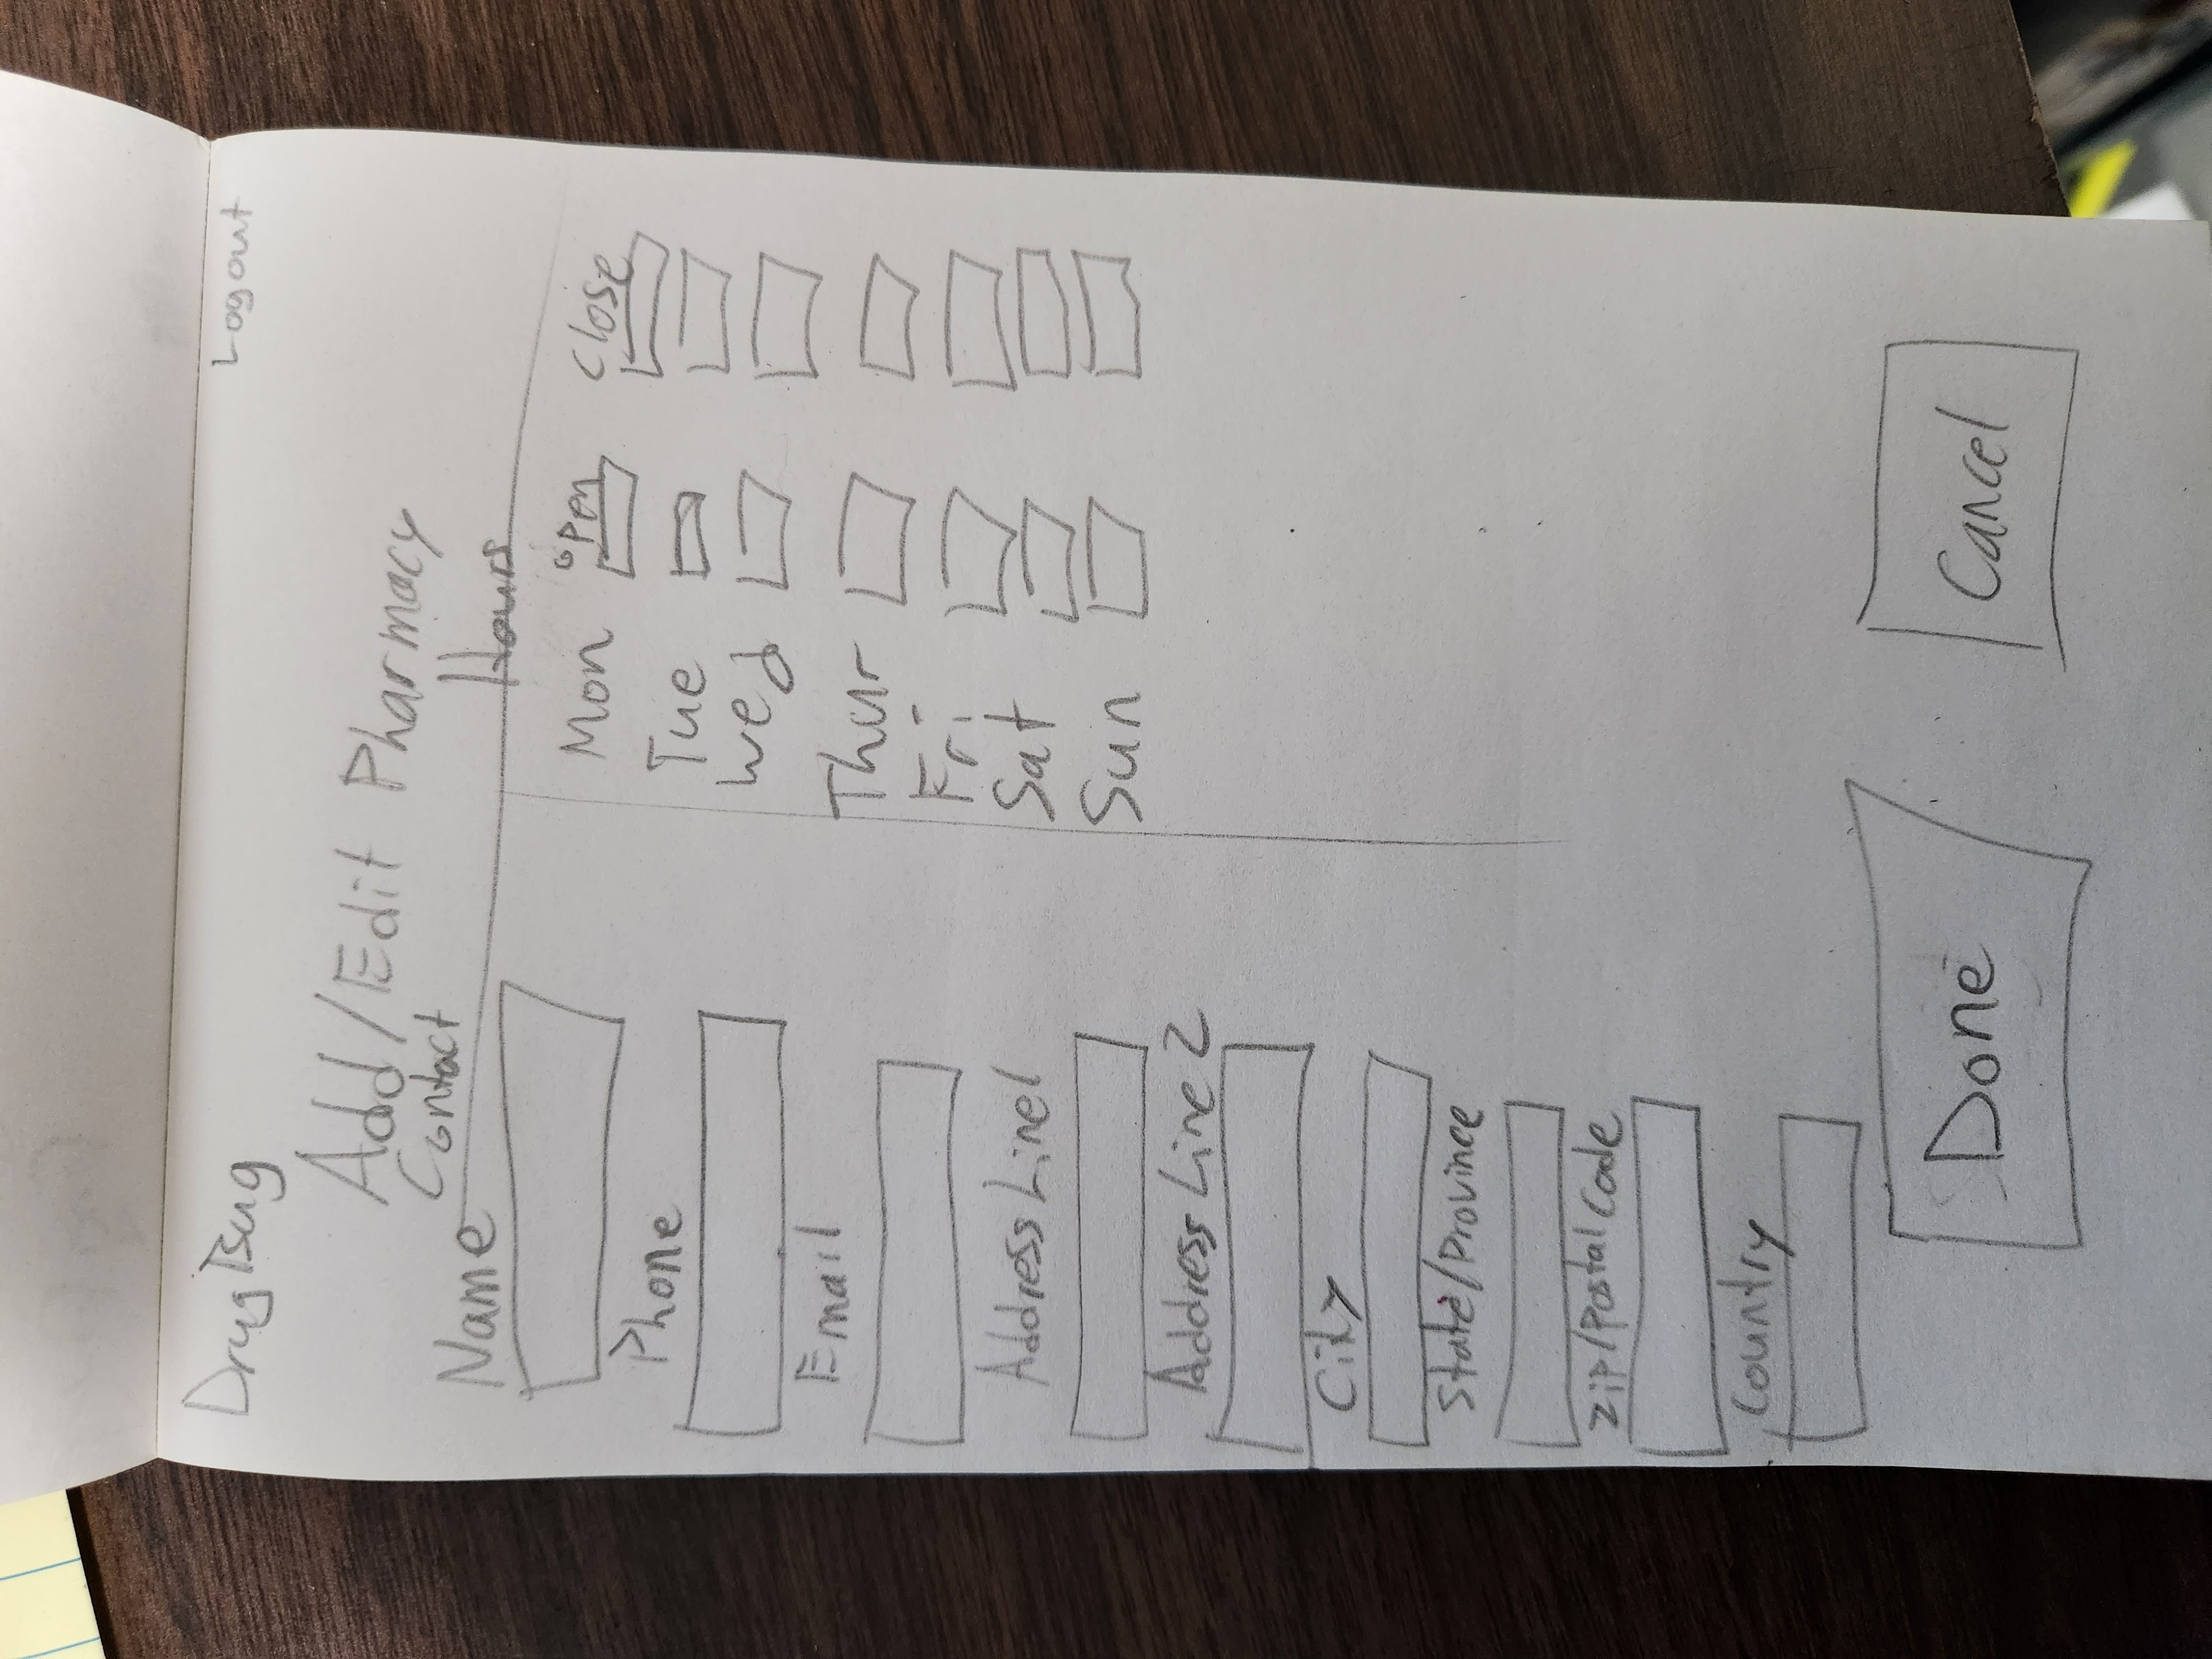 DrugBug
Logout
Add/Edit Pharmacy
Contact
Name
Phone
Email
Address Line1
Address Line 2
City
State/Province
Zip/Postal Code
Country
Hours
Open Close
Mon
Tue
Wed
Thur
Fri
Sat
Sun
Done
Cancel